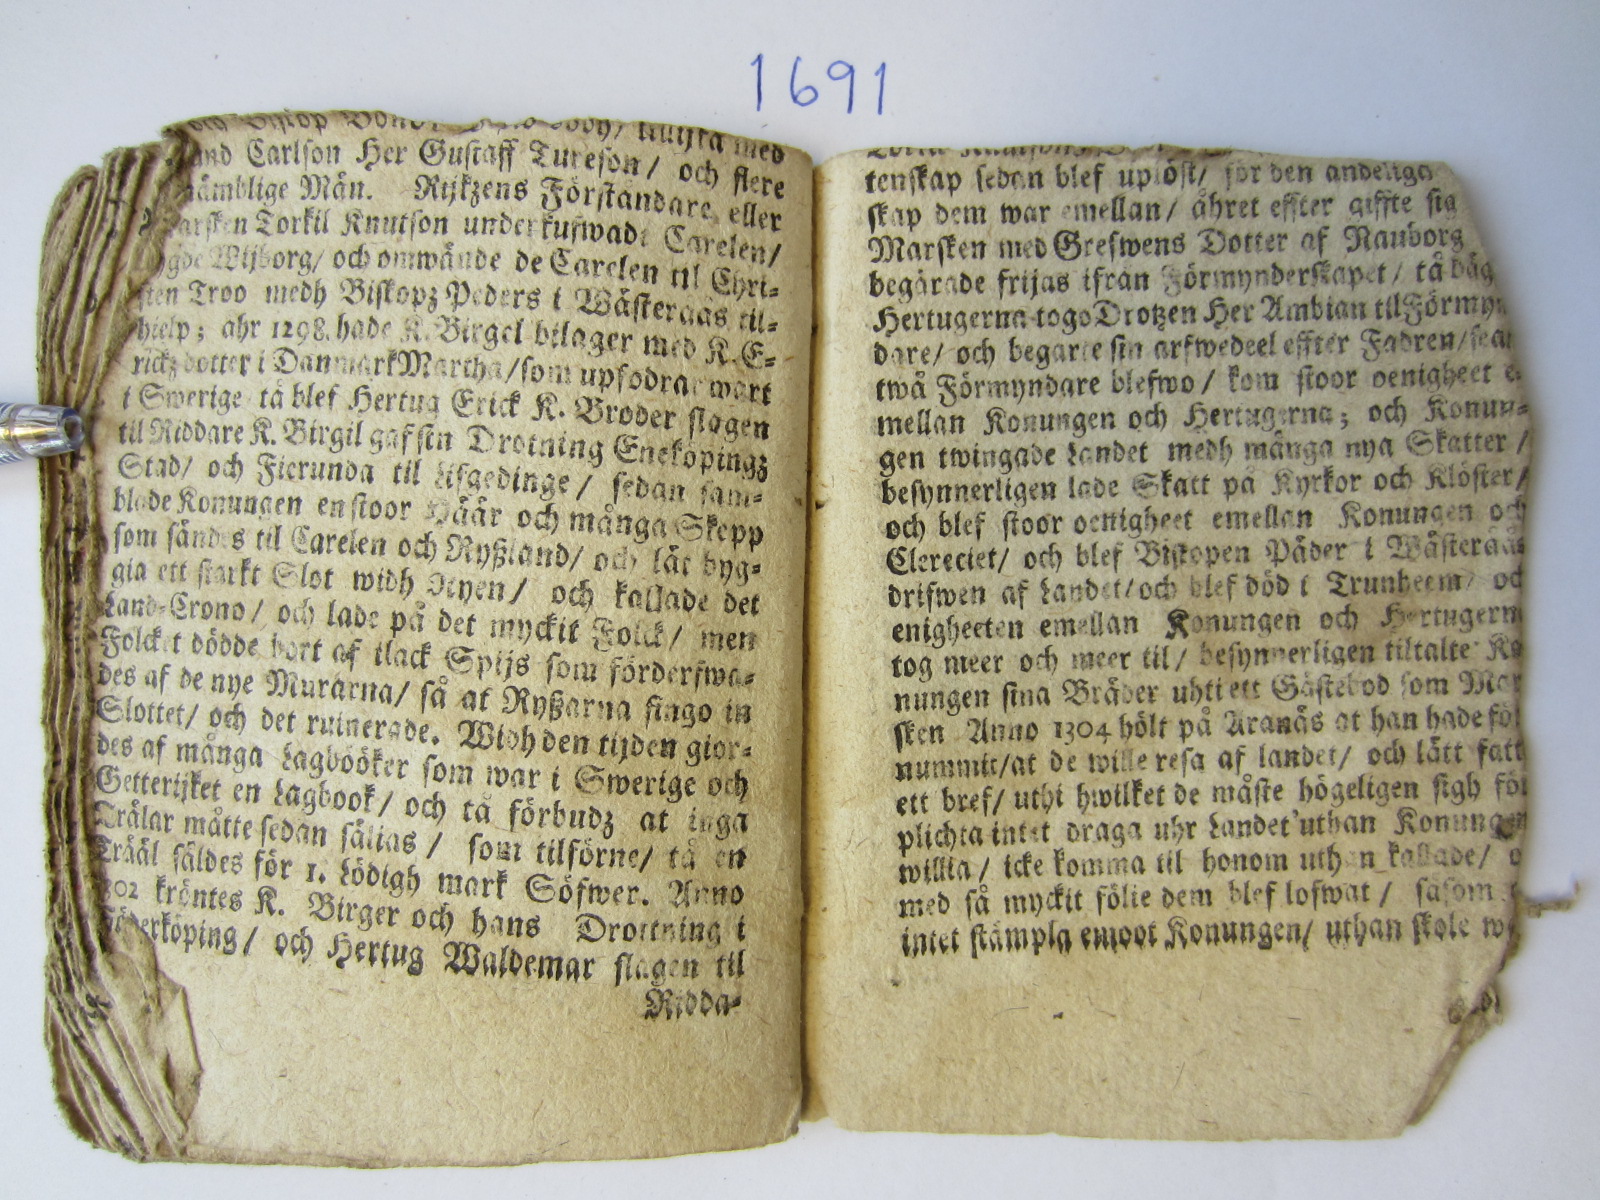 1691
Carlson Her Gustaff Tureson / och flere
nämblige Män. Rijkzens Förståndare eller
Torkil Knutson underkufwade Carelen /
Wijborg / och omwände de Carelen til Chri-
sten Troo medh Biskopz Peders i Wästeraas til-
hielp ; åhr 1298. hade K. Birgel bilager med K. E-
rickz dotter i Danmark Martha / som upfodrat wart
i Swerige tå blef Hertug Erick K. Broder slagen
til Riddare K. Birgil gaf sin Drotning Eneköpingz
Stad / och Fierunda til Lifgedinge / sedan sam-
blade Konungen en stoor Häär och många Skepp
som sändes til Carelen och Ryßland / och lät byg-
gia ett starkt Slot widh Nyen / och kallade det
Land-Crono / och lade på det myckit Folck / men
Folcket dödde bort af elack Spijs som förderfwa-
des af de nye Murarna / så at Ryßarna fingo in
Slottet / och det ruinerade. Widh den tijden gior-
des af många Lagbööker som war i Swerige och
Götterijket en Lagbook / och tå förbudz at inga
Trälar måtte sedan sälias / som tilförne / tå en
Trääl såldes för 1. Lödigh mark Söfwer. Anno
1302 kröntes K. Birger och hans Drottning i
Söderköping / och Hertug Waldemar slagen til
Ridda-
tenskap sedan blef uplöst / för den andeliga
skap dem war emellan / åhret effter giffte sig
Marsken med Grefwens Dotter af Rauborg
begärade frijas ifrån Förmynderskapet / tå
Hertugerna togo Drotzen Her Ambian til Förmyn
dare / och begärte sin arfwedeel effter Fadren /
twå Förmyndare blefwo / kom stoor oenigheet e-
mellan Konungen och Hertugerna ; och Konun-
gen twingade Landet medh många nya Skatter /
besynnerligen lade Skatt på Kyrkor och Klöster /
och blef stoor oenigheet emellan Konungen och
Clereciet / och blef Biskopen Päder i Wästeraas
drifwen af Landet / och blef död i Trunheem / och
enigheeten emellan Konungen och Hertugerna
tog meer och meer til / besynnerligen tiltalte Ko
nungen sina Bräder uhti ett Gästebod som Mar
sken Anno 1304 hölt på Aranäs at han hade för
nummit / at de wille resa af landet / och lätt fatta
ett bref / uthi hwilket de måste högeligen sigh för
plichta intet draga uhr Landet uthan Konungens
willia / icke komma til honom uthan kallade /
med så myckit fölie dem blef lofwat / såsom
intet stämpla emoot Konungen / uthan skole